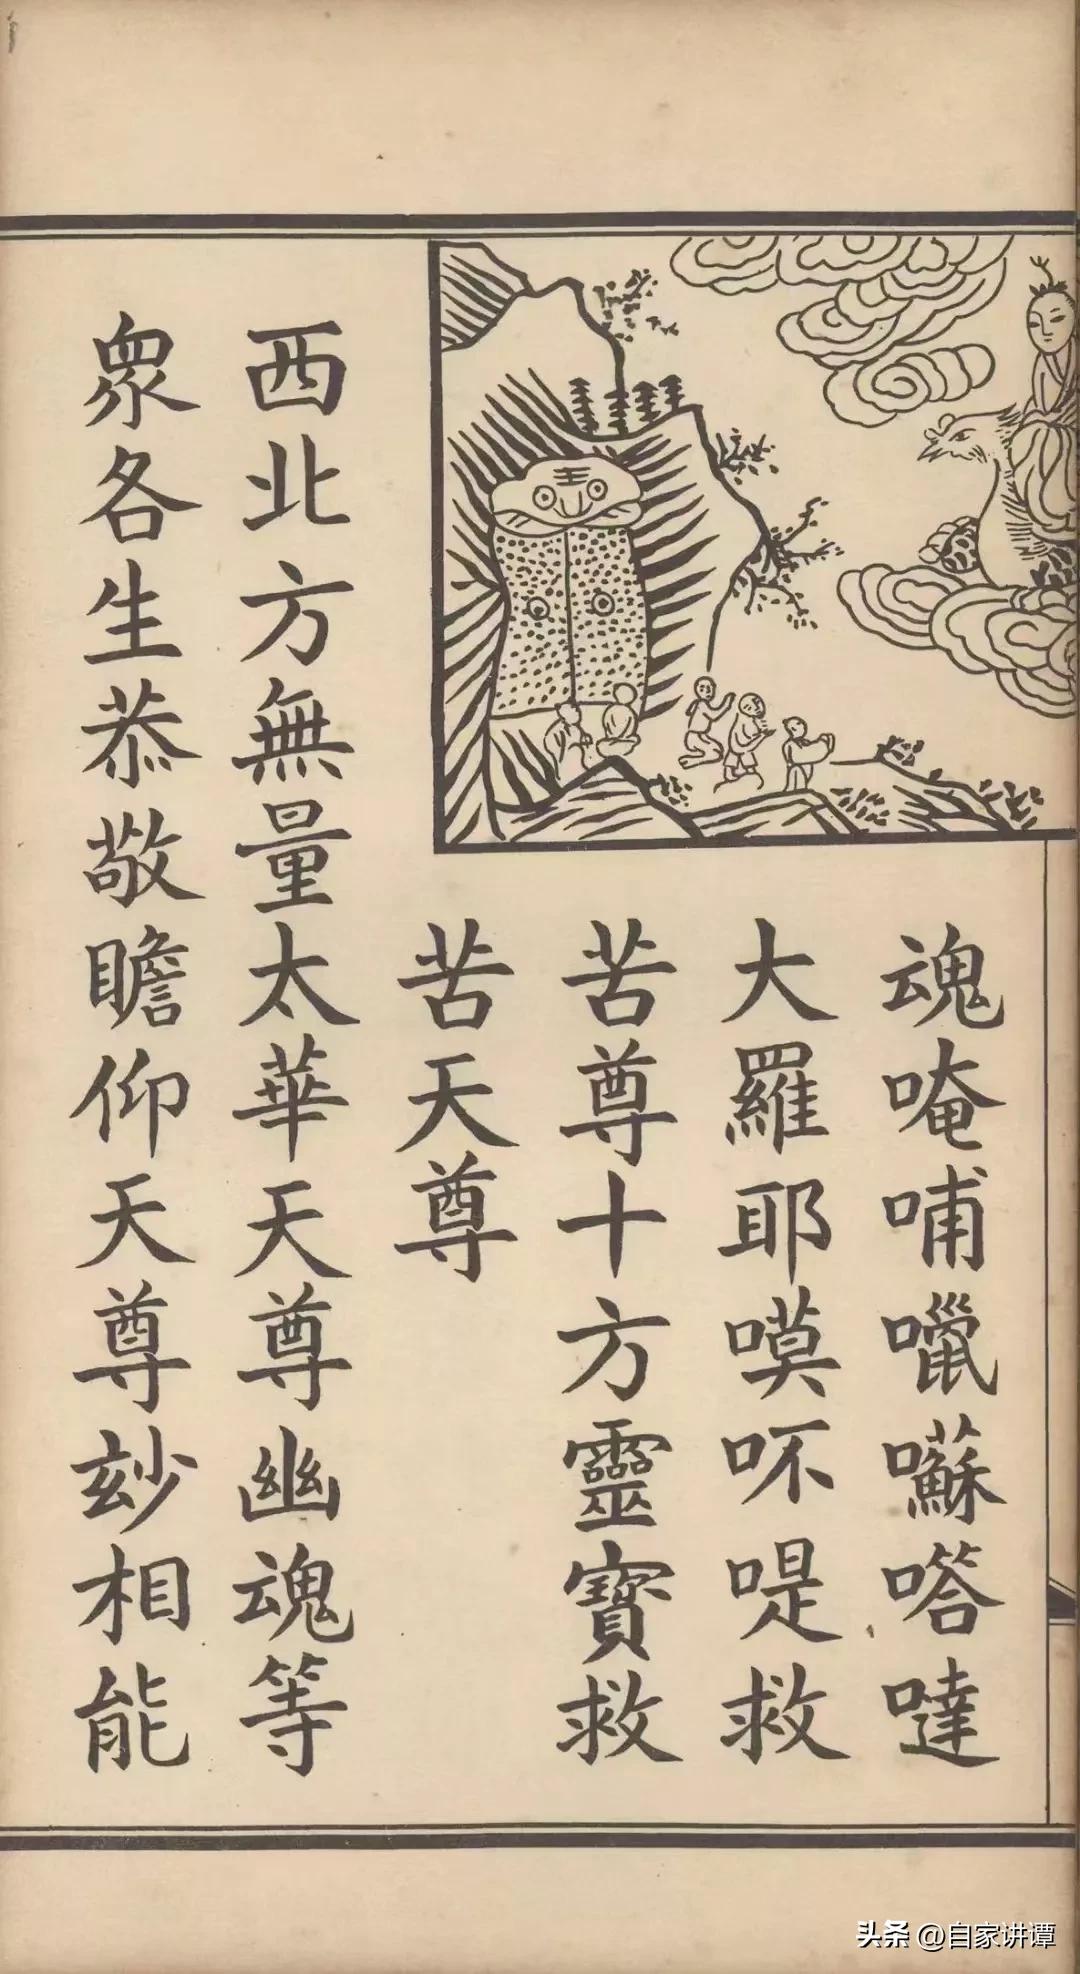 魂唵哺囌嗒噠
大羅耶嗼吥㖷救
苦尊十方靈寳救
苦天尊
西北方無量太華天尊幽魂等
衆各生恭敬瞻仰天尊玅相能
头条 @自家讲谭